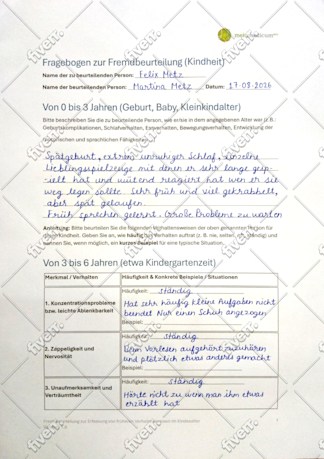 Fragebogen zur Fremdbeurteilung (Kindheit)
Name der zu beurteilenden Person: Felix Metz
Name der beurteilenden Person: Martina Metz Datum: 17-08-2026
Von 0 bis 3 Jahren (Geburt, Baby, Kleinkindalter)
Bitte beschreiben Sie die zu beurteilende Person, wie er/sie in dem angegebenen Alter war (z.B.
Geburtskomplikationen, Schlafverhalten, Essverhalten, Bewegungsverhalten, Entwicklung der
motorischen und sprachlichen Fähigkeiten
Spätgeburt, extrem unruhiger Schlaf, einzelne
Lieblingsspielzeuge mit denen er sehr lange gesp-
ielt hat und wütend reagiert hat wen er sie
weg legen sollte. Sehr früh und viel gekrabbelt,
aber spät gelaufen.
Früh sprechen gelernt. Große Probleme zu warten
Anleitung: Bitte beurteilen Sie die folgenden Verhaltensweisen der oben genannten Person für
die Kindheit. Geben Sie an, wie häufig das Verhalten auftrat (z.B. nie, selten, oft, ständig) und
nennen Sie, wenn möglich, ein kurzes Beispiel für eine typische Situation.
Von 3 bis 6 Jahren (etwa Kindergartenzeit)
Merkmal / Verhalten Häufigkeit & Konkrete Beispiele / Situationen
Häufigkeit: ständig
1. Konzentrationsprobleme bzw. leichte Ablenkbarkeit
Hat sehr häufig kleine Aufgaben nicht
beendet Nur einen Schuh angezogen
Beispiel:
Häufigkeit: ständig
2. Zappeligkeit und Nervosität
Beim Vorlesen aufgehört zuzuhören
und plötzlich etwas anderes gemacht
Beispiel:
Häufigkeit: ständig
3. Unaufmerksamkeit und Verträumtheit
Hörte nicht zu wenn man ihm etwas
erzählt hat
fiverr.